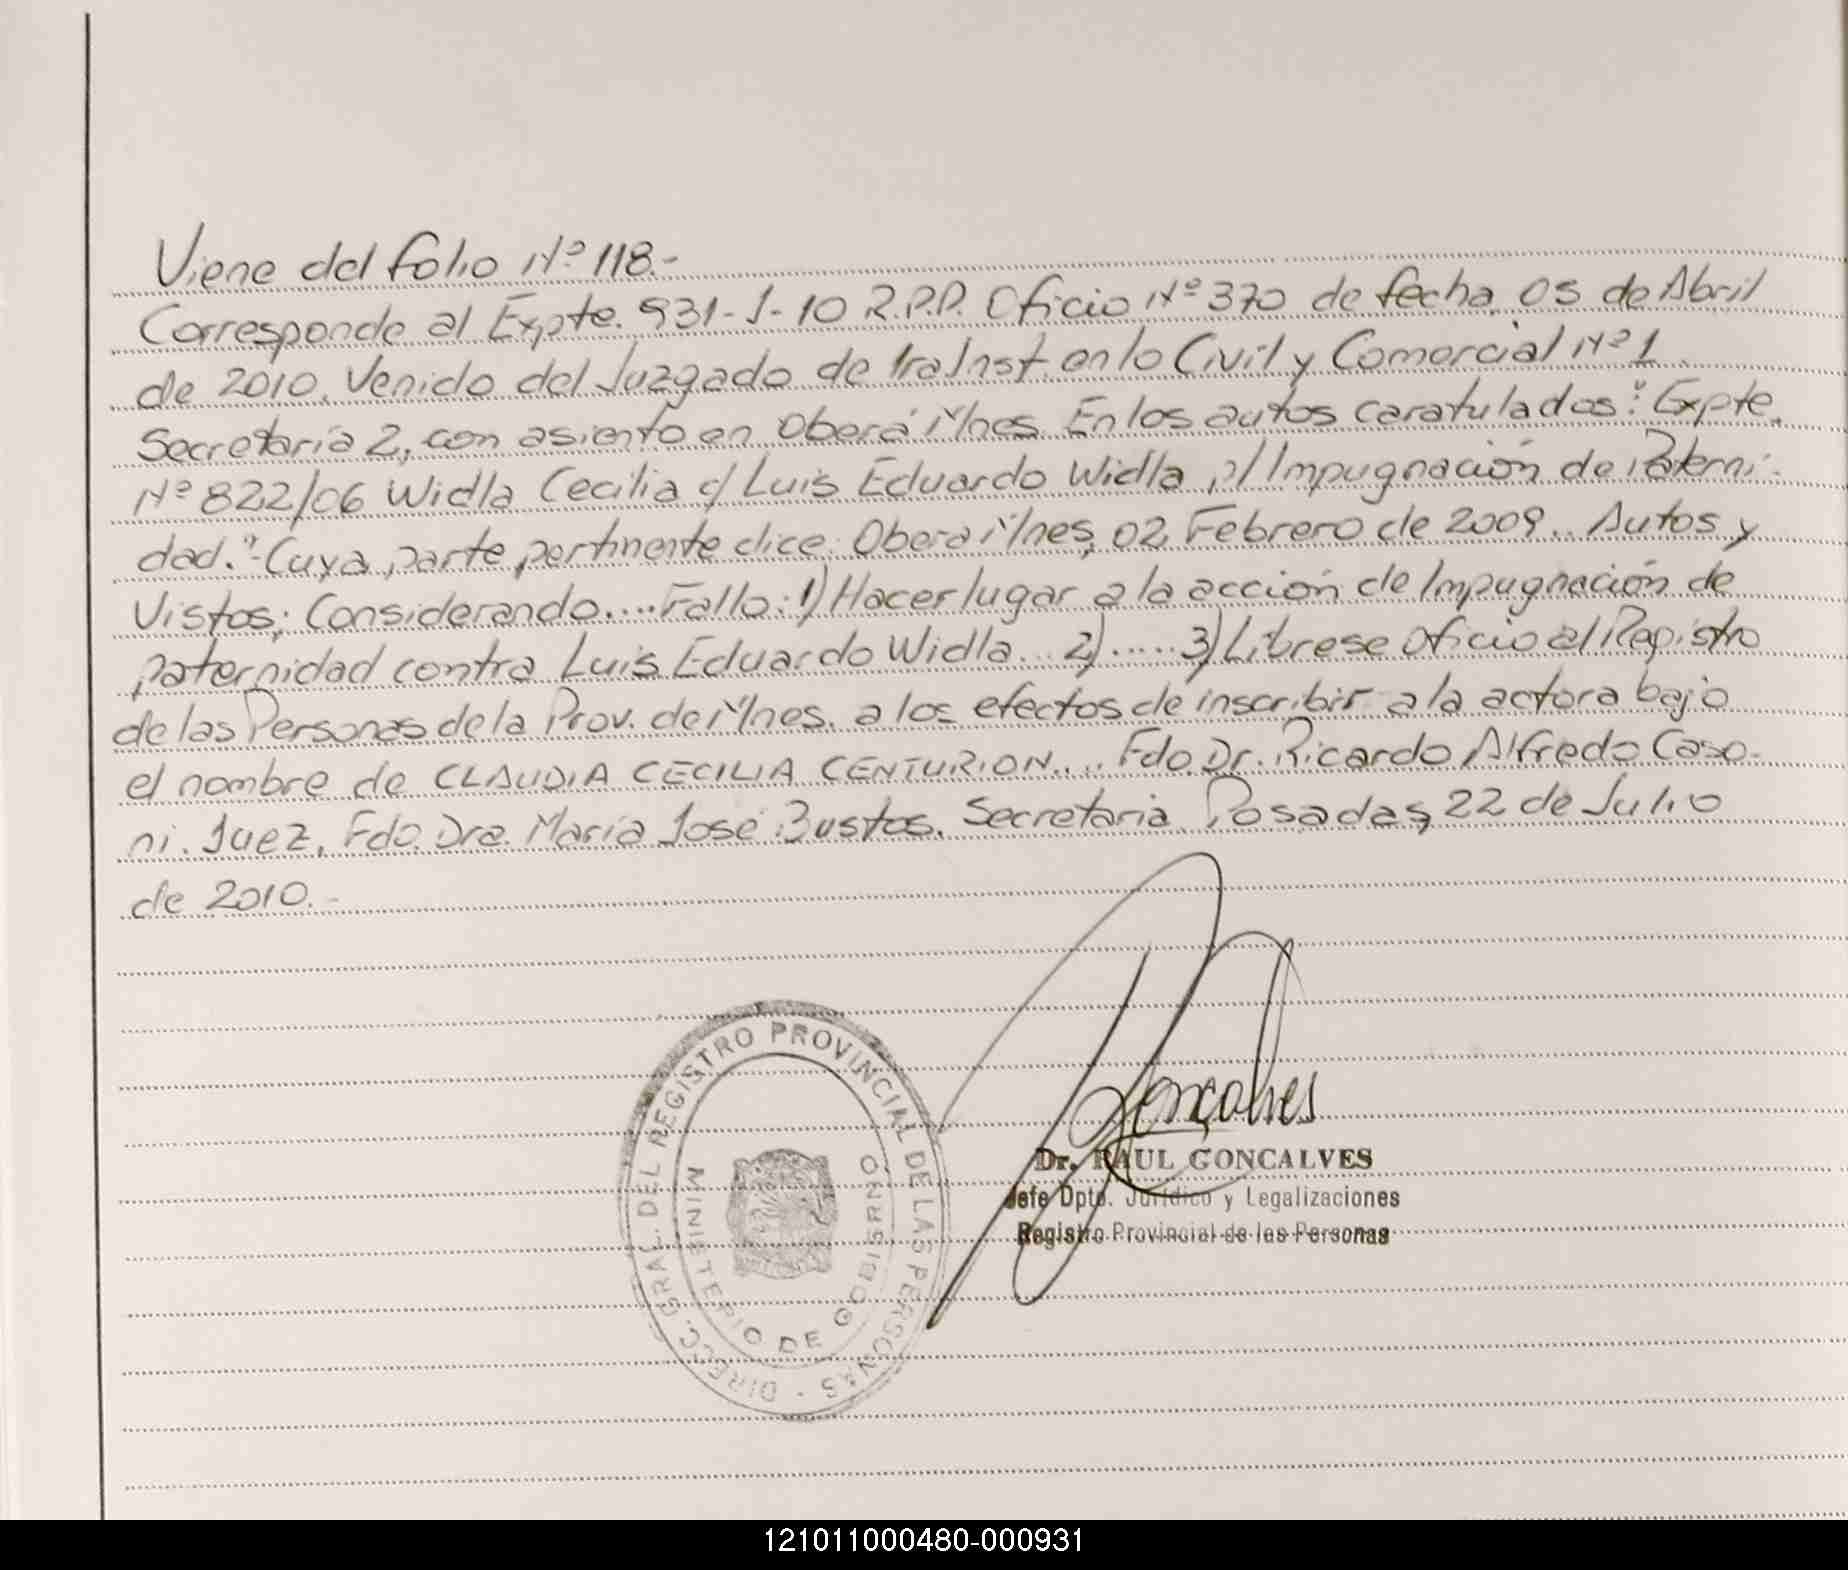 Viene del folio Nº 118.-
Corresponde al Expte. 931-J-10 R.P.P. Oficio Nº 370 de fecha 05 de Abril
de 2010. Venido del Juzgado de 1ra Inst. en lo Civil y Comercial Nº 1
Secretaría 2, con asiento en Oberá Mnes. En los autos caratulados: "Expte.
Nº 822/06 Widla Cecilia c/ Luis Eduardo Widla p/ Impugnación de Paterni-
dad."- Cuya parte pertinente dice: Obera Mnes, 02 Febrero de 2009.. Autos y
Vistos; Considerando.... Fallo: 1) Hacer lugar a la acción de Impugnación de
paternidad contra Luis Eduardo Widla... 2)..... 3) Librese Oficio al Registro
de las Personas de la Prov. de Mnes. a los efectos de inscribir a la actora bajo
el nombre de CLAUDIA CECILIA CENTURION.... Fdo. Dr. Ricardo Alfredo Caso-
ni. Juez. Fdo. Dra. María José Bustos. Secretaria. Posadas, 22 de Julio
de 2010.-
DIRECC. GRAL. DEL REGISTRO PROVINCIAL DE LAS PERSONAS
MINISTERIO DE GOBIERNO
Goncalves
Dr. RAUL GONCALVES
Jefe Dpto. Jurídico y Legalizaciones
Registro Provincial de las Personas
121011000480-000931